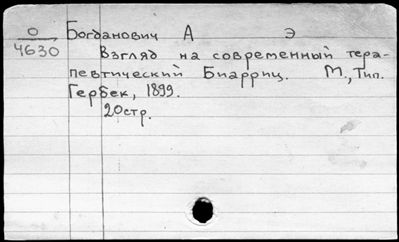 О
4630
Богданович А Э
Взгляд на современный тера-
певтический Биарриц. М., Тип.
Гербек, 1899.
20стр.